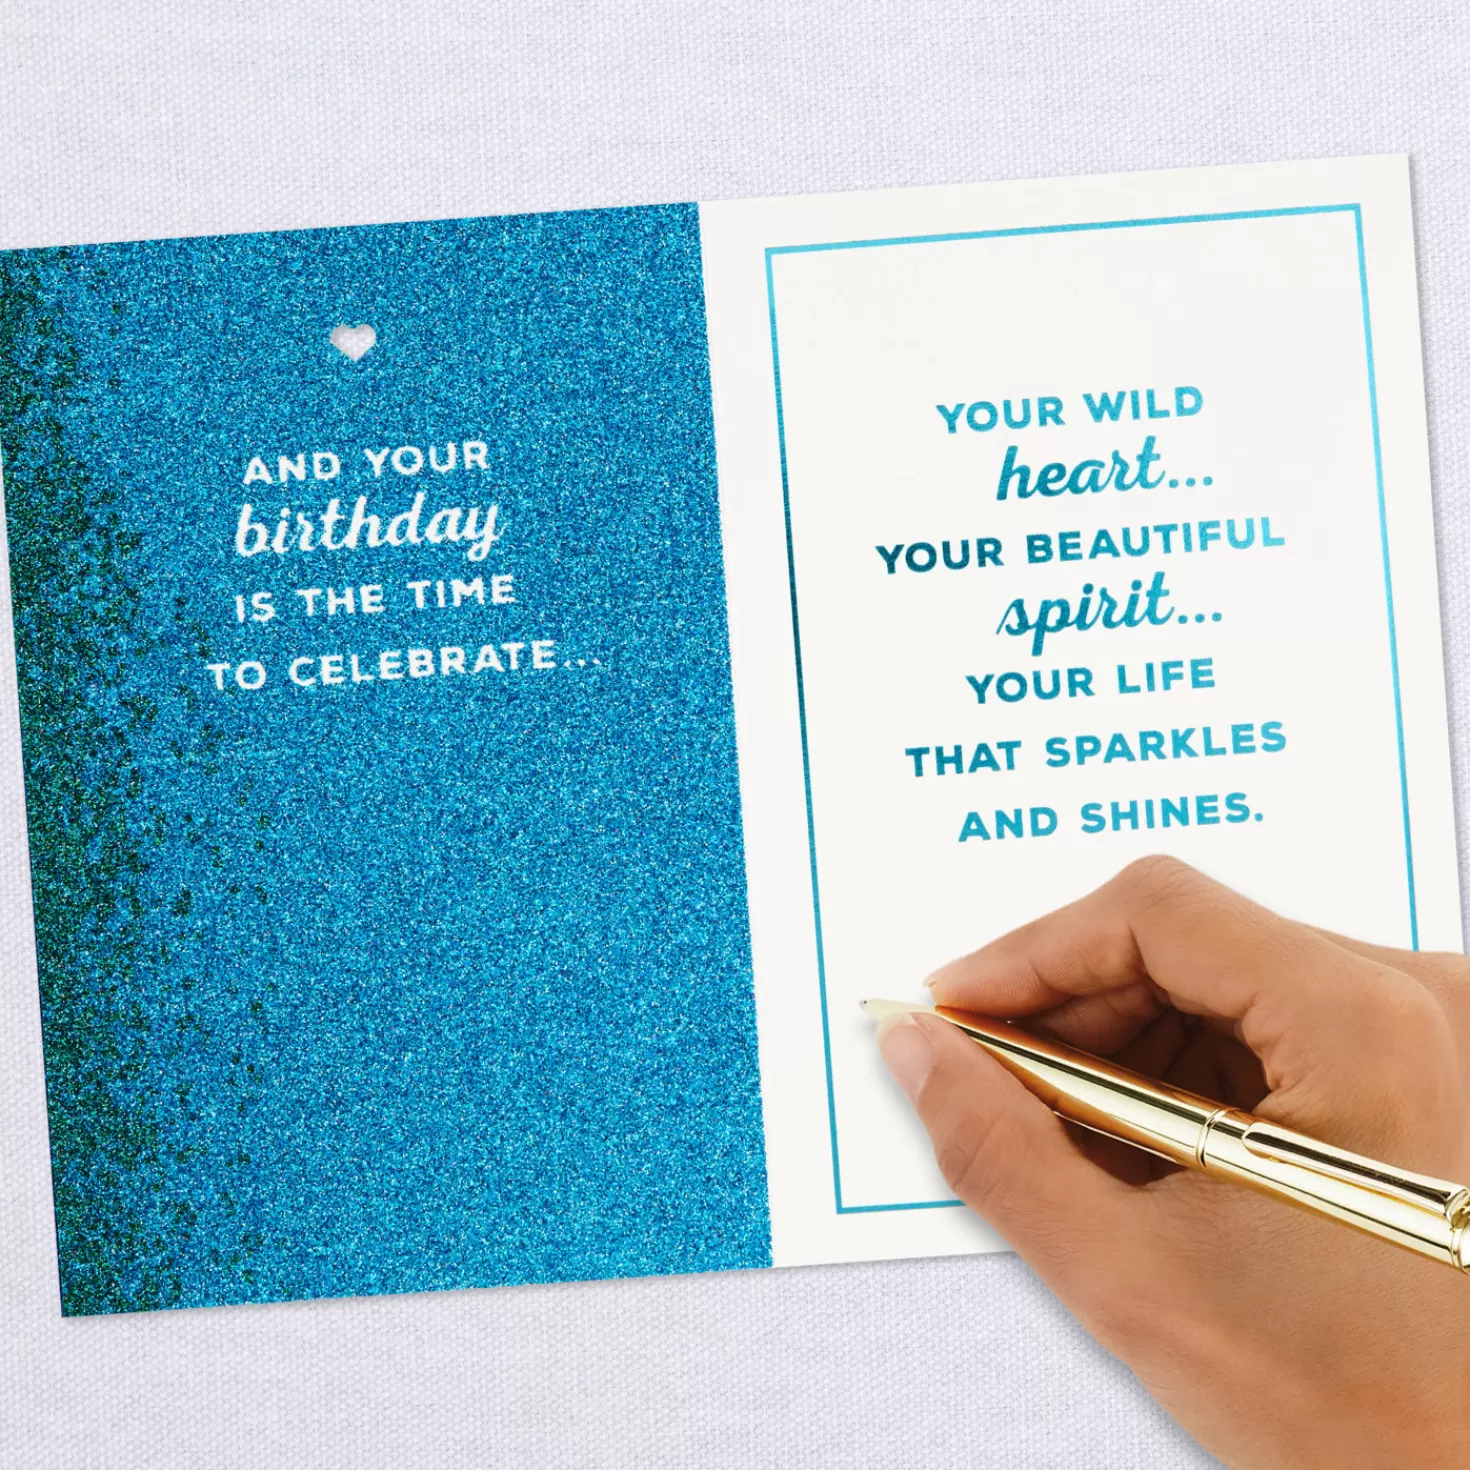 AND YOUR
birthday
IS THE TIME
TO CELEBRATE...
YOUR WILD
heart...
YOUR BEAUTIFUL
spirit...
YOUR LIFE
THAT SPARKLES
AND SHINES.